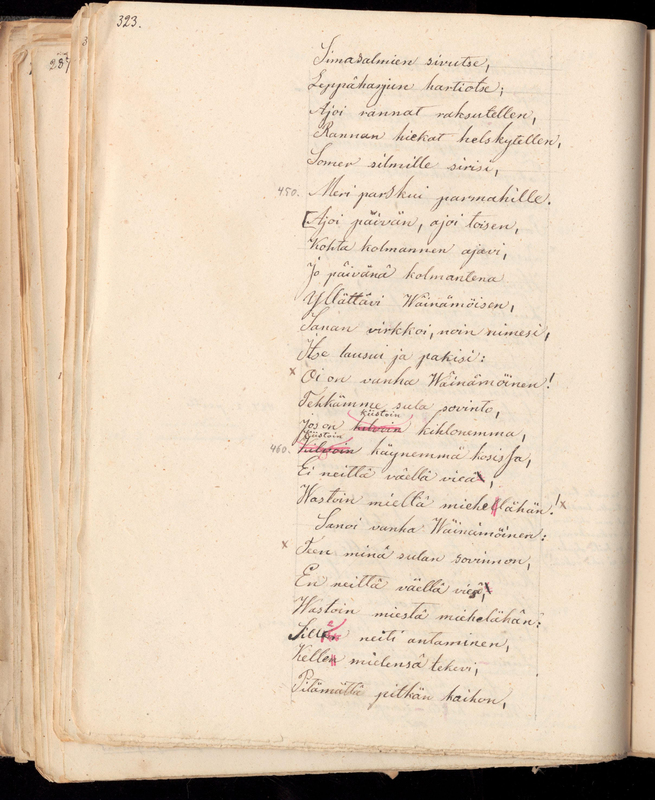 323.
Simasalmien sivutse,
Leppäharjun hartiotse;
Ajoi rannat raksutellen,
Rannan hiekat helskytellen,
Somer silmille sirisi,
450. Meri parskui parmahille.
[Ajoi päivän, ajoi toisen,
Kohta kolmannen ajavi,
Jo päivänä kolmantena
Yllättävi Wäinämöisen,
Sanan virkkoi, noin nimesi,
Itse lausui ja pakisi:
x Oi on vanha Wäinämöinen!
Tehkämme sula sovinto,
kiistoin
Jos on kilvoin kihlonemma,
kiistoin
460. Kilvoin käynemmä kosissa,
Ei neittä väellä vieä,
Wastoin mieltä miehelähän! x
Sanoi vanha Wäinämöinen:
x Teen minä sulan sovinnon,
En neittä väellä vieä,
Wastoin miestä miehelähän:
neiti antaminen,
Kellen mielensä tekevi,
Pitämättä pitkän kaihon,